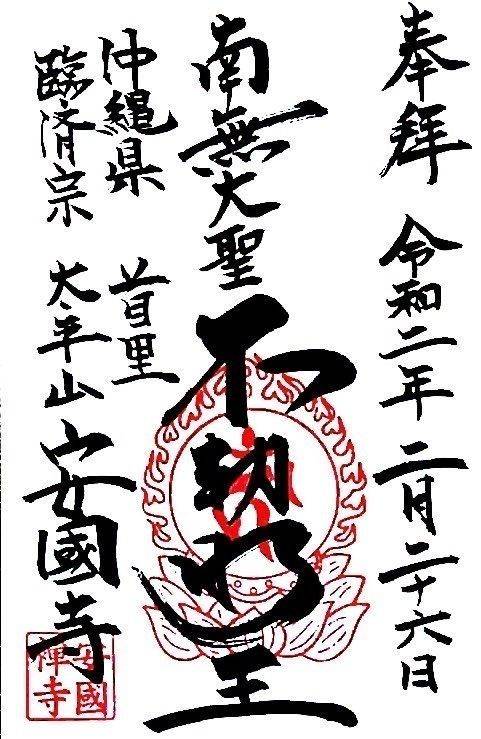 奉拜 令和二年 二月二十六日
南無大聖 不動明王
沖繩県 首里
臨済宗 太平山 安國寺
安國
禅寺